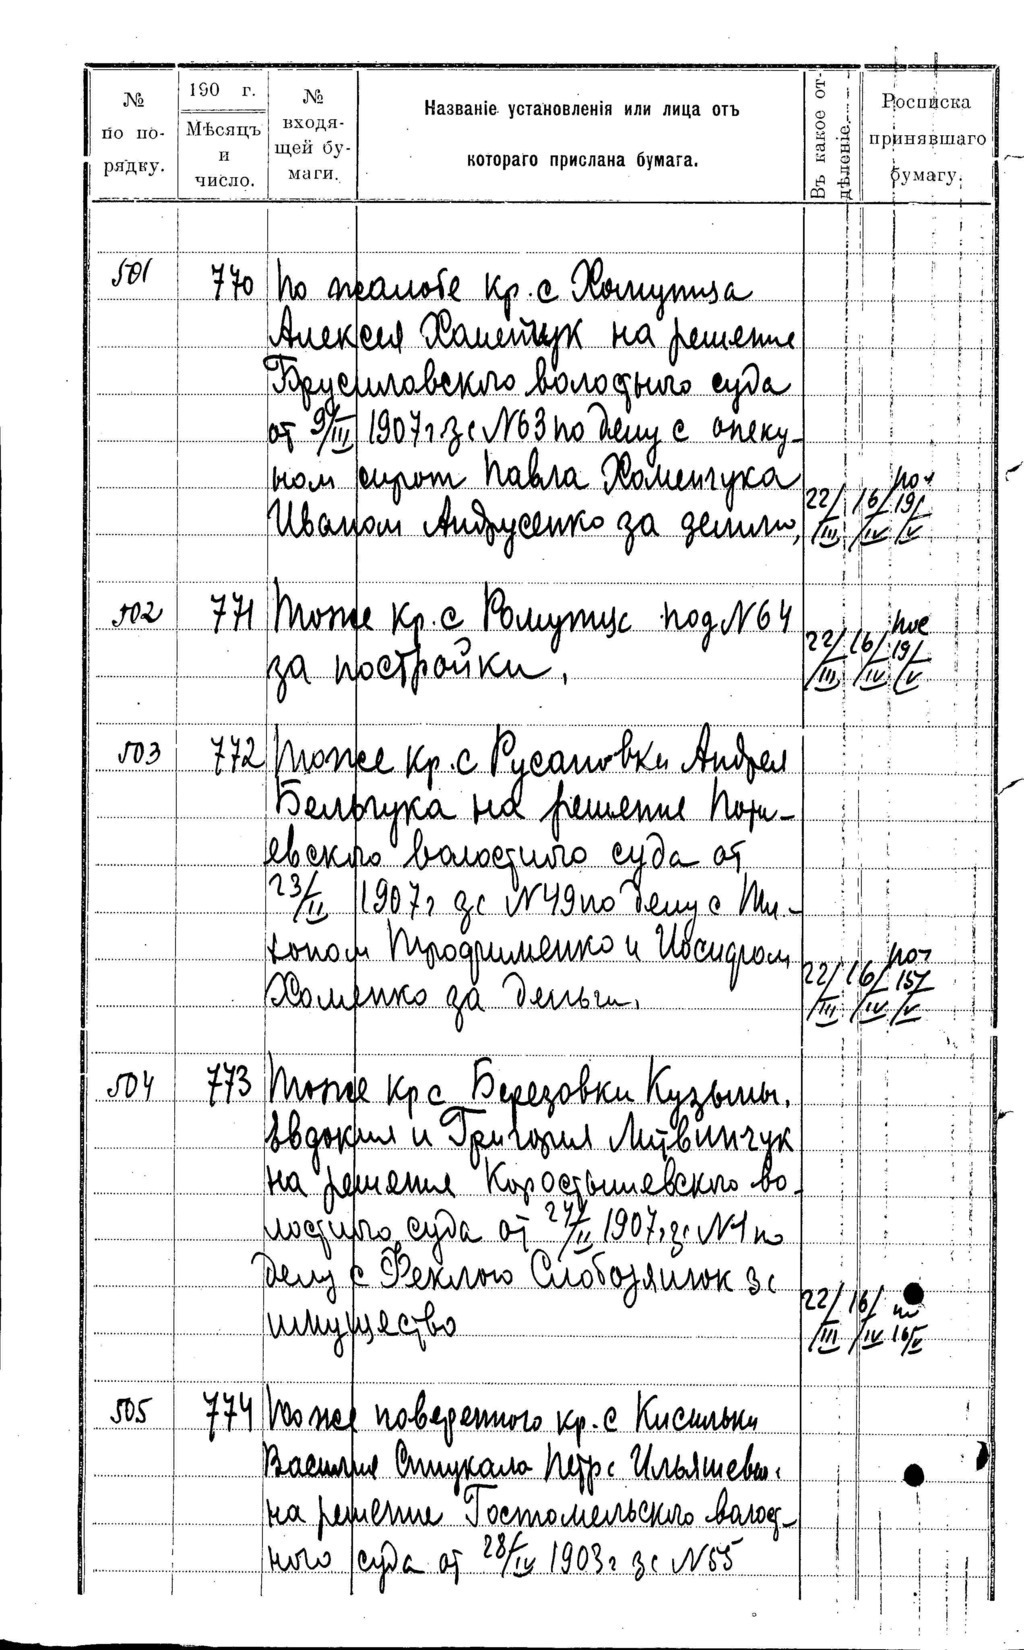 № по порядку.
190 г. Мѣсяцъ и число.
№ входящей бумаги.
Названіе установленія или лица отъ котораго прислана бумага.
Въ какое отдѣленіе.
Росписка принявшаго бумагу.
501 770 По жалобе кр. с Хомутца
Алексея Хоменчук на решение
Брусиловского волостного суда
от 9/III 1907 г за №63 по делу с опеку-
ном сирот Павла Хоменчука
Иваном Андрусенко за землю,
22/III 16/IV 19/V
502 771 Тоже кр. с Хомутца под №64
за постройки.
22/III 16/IV 19/V
503 772 Тоже кр. с Русановки Андрея
Бельчука на решение
евского волостного суда от
23/II 1907 г за №49 по делу с Ти-
хоном Трофименко и Иосифом
Хоменко за деньги.
22/III 16/IV 15/V
504 773 Тоже кр с Березовки Кузьмы,
Евдокия и Григория Литвинчук
на решение Коростышевского во-
лостного суда от /II 1907 г за №1 по
делу с Феклою Слободянюк за
имущество
22/III 16/IV 16/V
505 774 Тоже поверенного кр. с Кисилки
Василия Стукало Петра Ильяшев
на решение Гостомельского волост-
ного суда от 28/IV 1903 г за №55